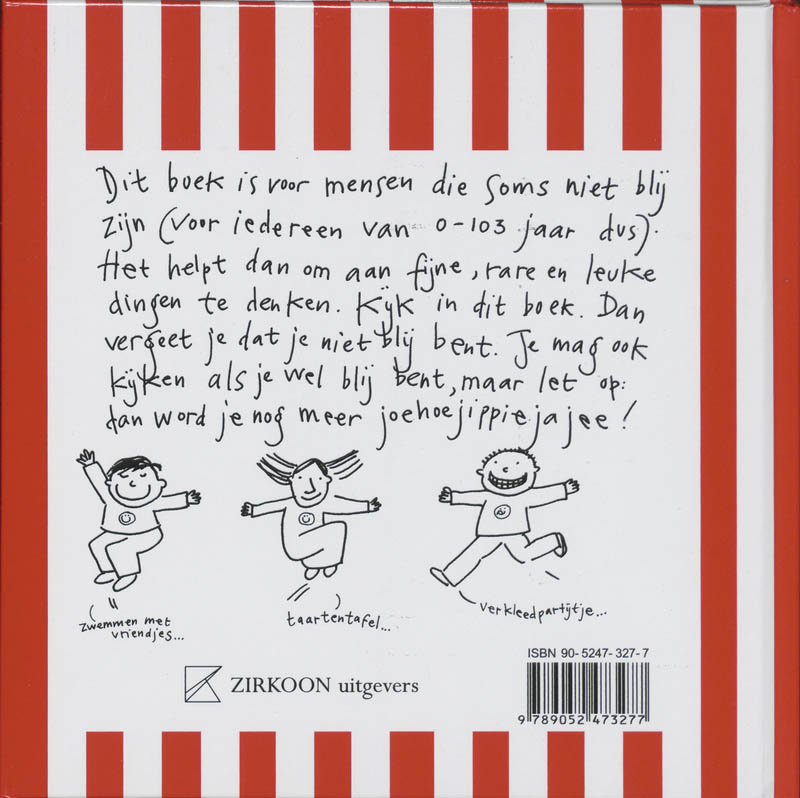 Dit boek is voor mensen die soms niet blij
zijn (voor iedereen van 0-103 jaar dus).
Het helpt dan om aan fijne, rare en leuke
dingen te denken. Kijk in dit boek. Dan
vergeet je dat je niet blij bent. Je mag ook
kijken als je wel blij bent, maar let op:
dan word je nog meer joehoejippiejajee!
zwemmen met
vriendjes...
taartentafel...
verkleedpartijtje...
ISBN 90-5247-327-7
ZIRKOON uitgevers
9 789052 473277